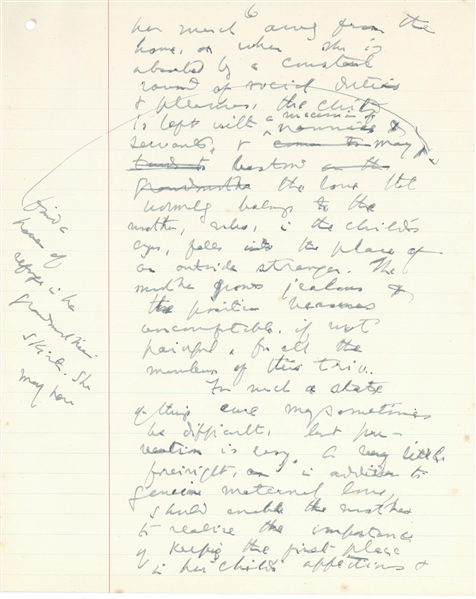 6
her much away from the
home, or when she is
absorbed by a constant
round of social duties
& pleasures, the child
is left with a succession of
nannies &
servants, & come to may
tends to bestow on the
grandmother the love that
normally belongs to the
mother, who, in the child's
eyes, falls into the place of
an outside stranger. The
mother grows jealous &
the position becomes
uncomfortable, if not
painful, for all the
members of this trio.
For such a state
of things cure may sometimes
be difficult, but pre-
vention is easy. A very little
foresight, in addition to
genuine maternal love,
should enable the mother
to realise the importance
of keeping the first place
in her child's affections &
find a
haven of
refuge in the
grandmother's
skirts. She
may here